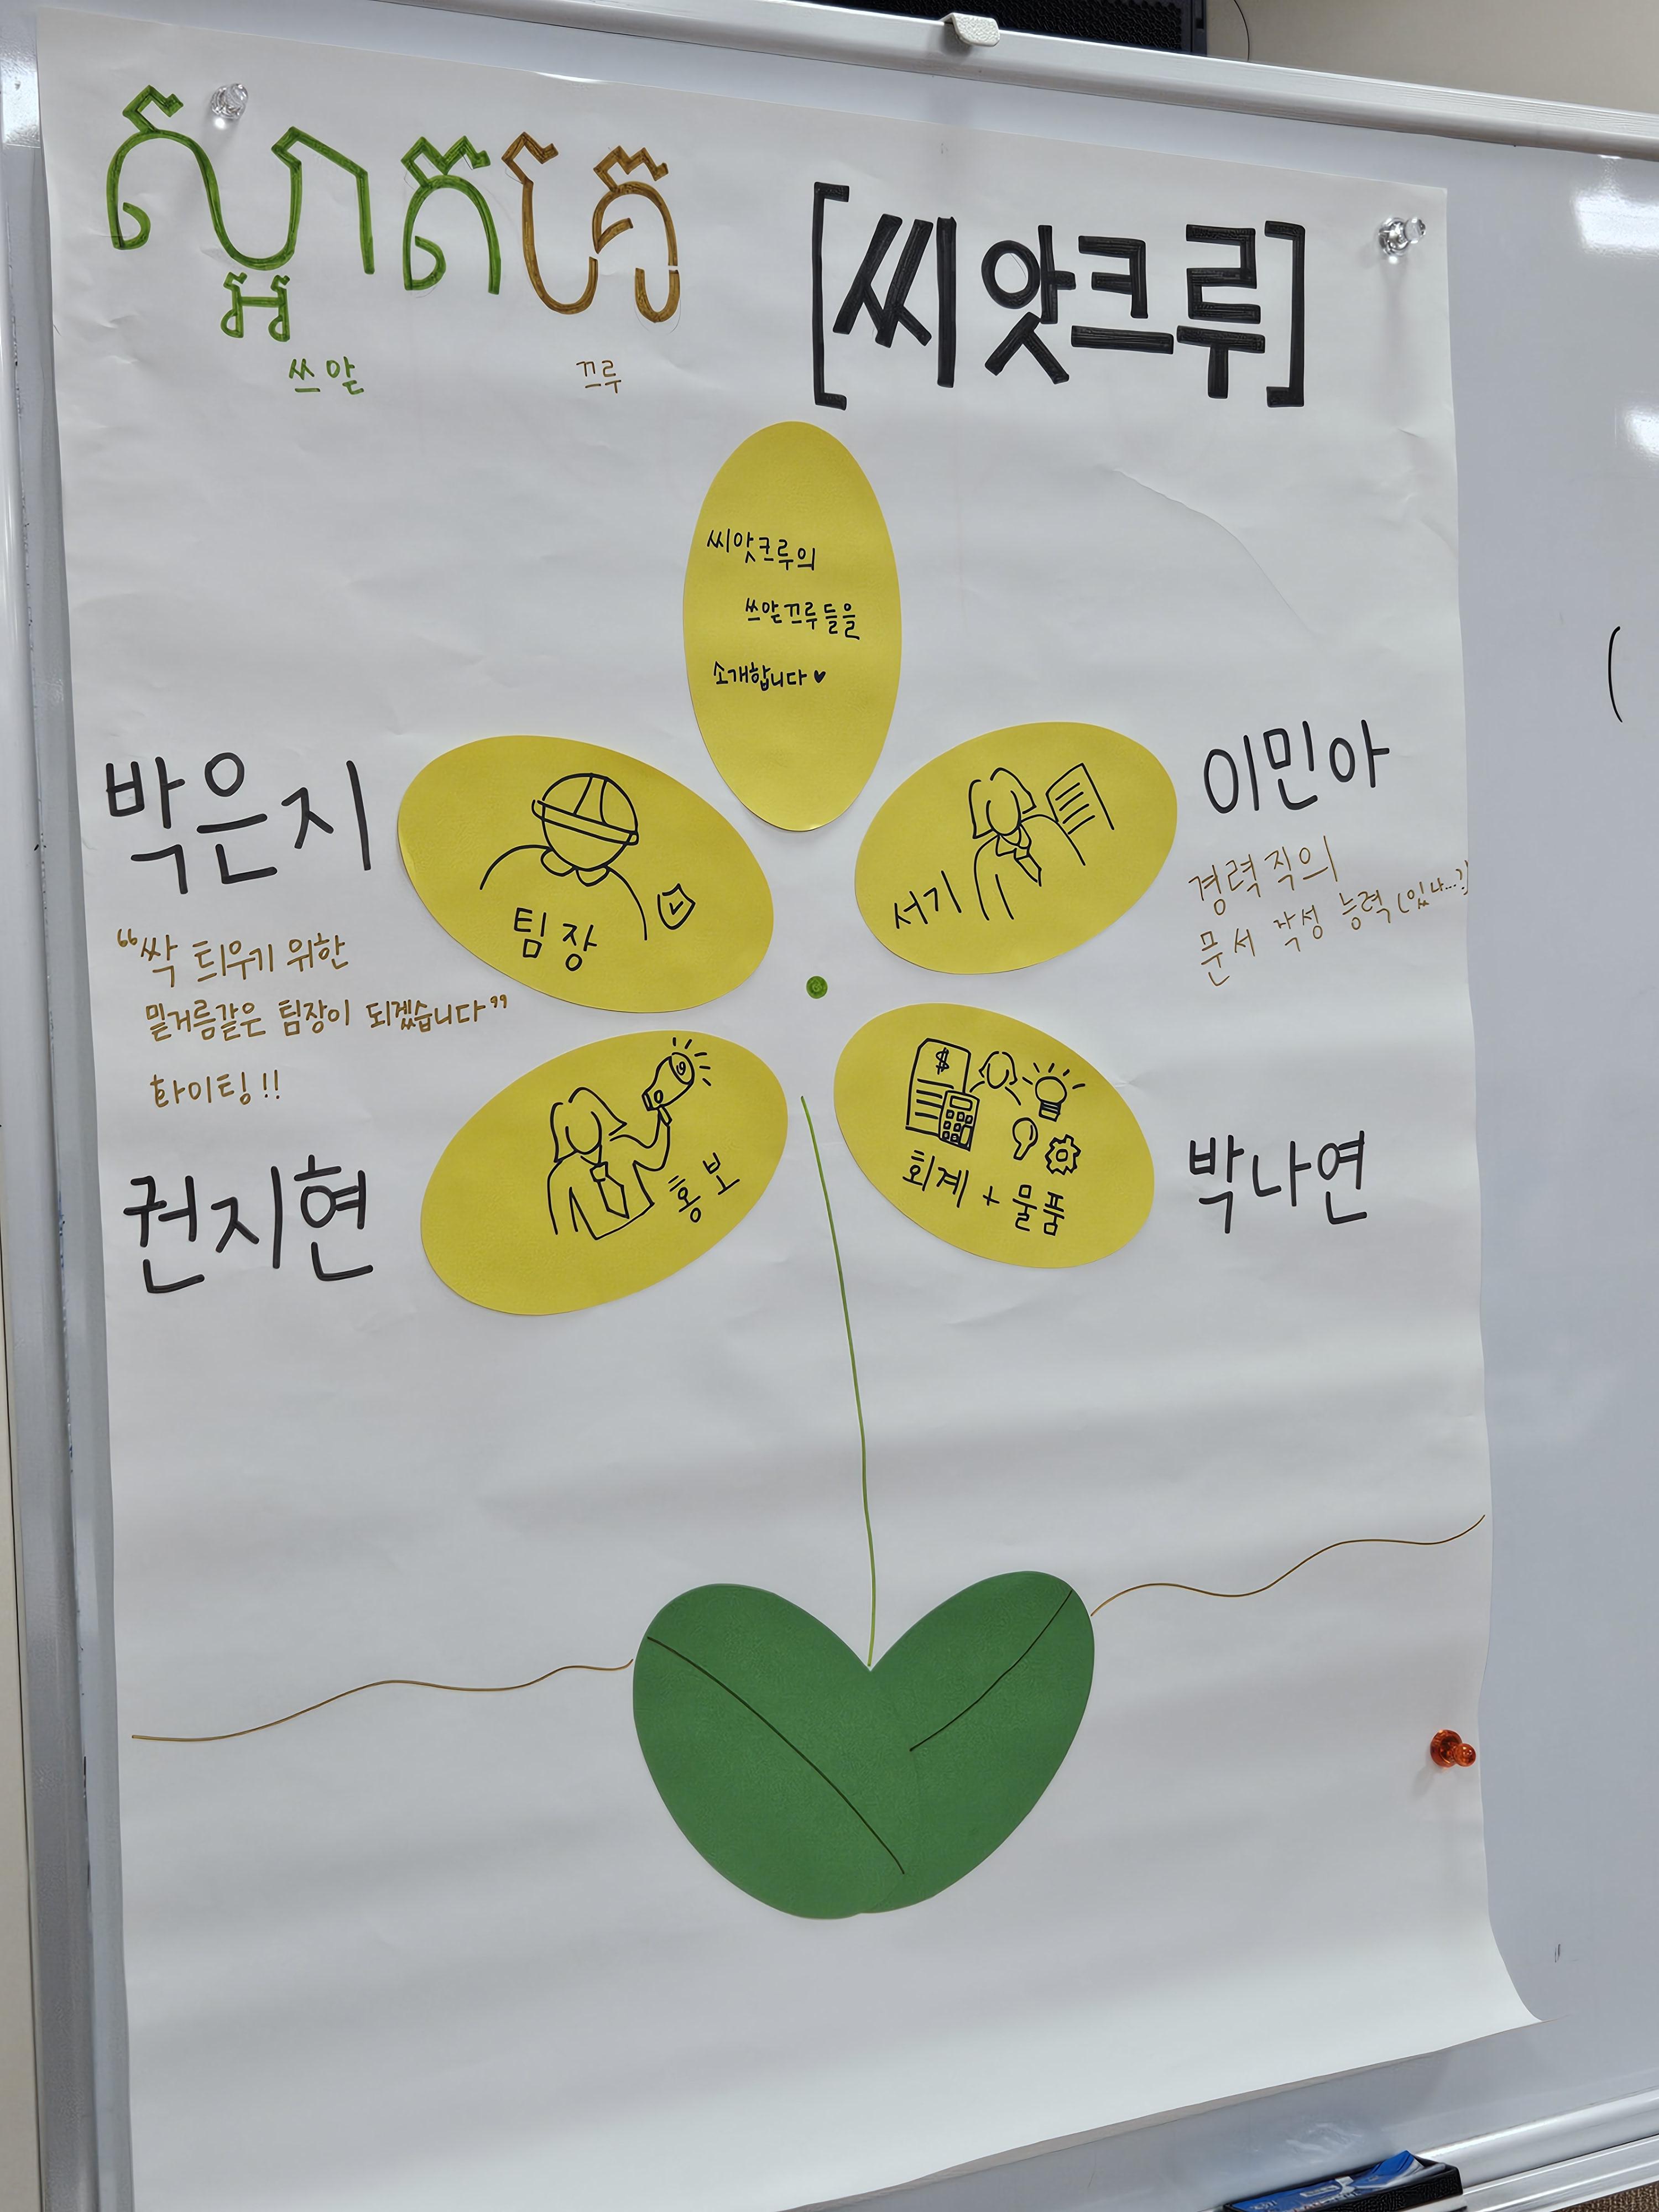 ស្អាតគ្រូ
쓰앋 끄루
[씨앗크루]
씨앗크루의
쓰앋끄루들을
소개합니다♥
박은지
팀장
"싹 틔우기 위한
밑거름같은 팀장이 되겠습니다"
화이팅!!
이민아
서기
경력직의
문서 작성 능력(있나...?)
권지현
홍보
박나연
$
회계 + 물품